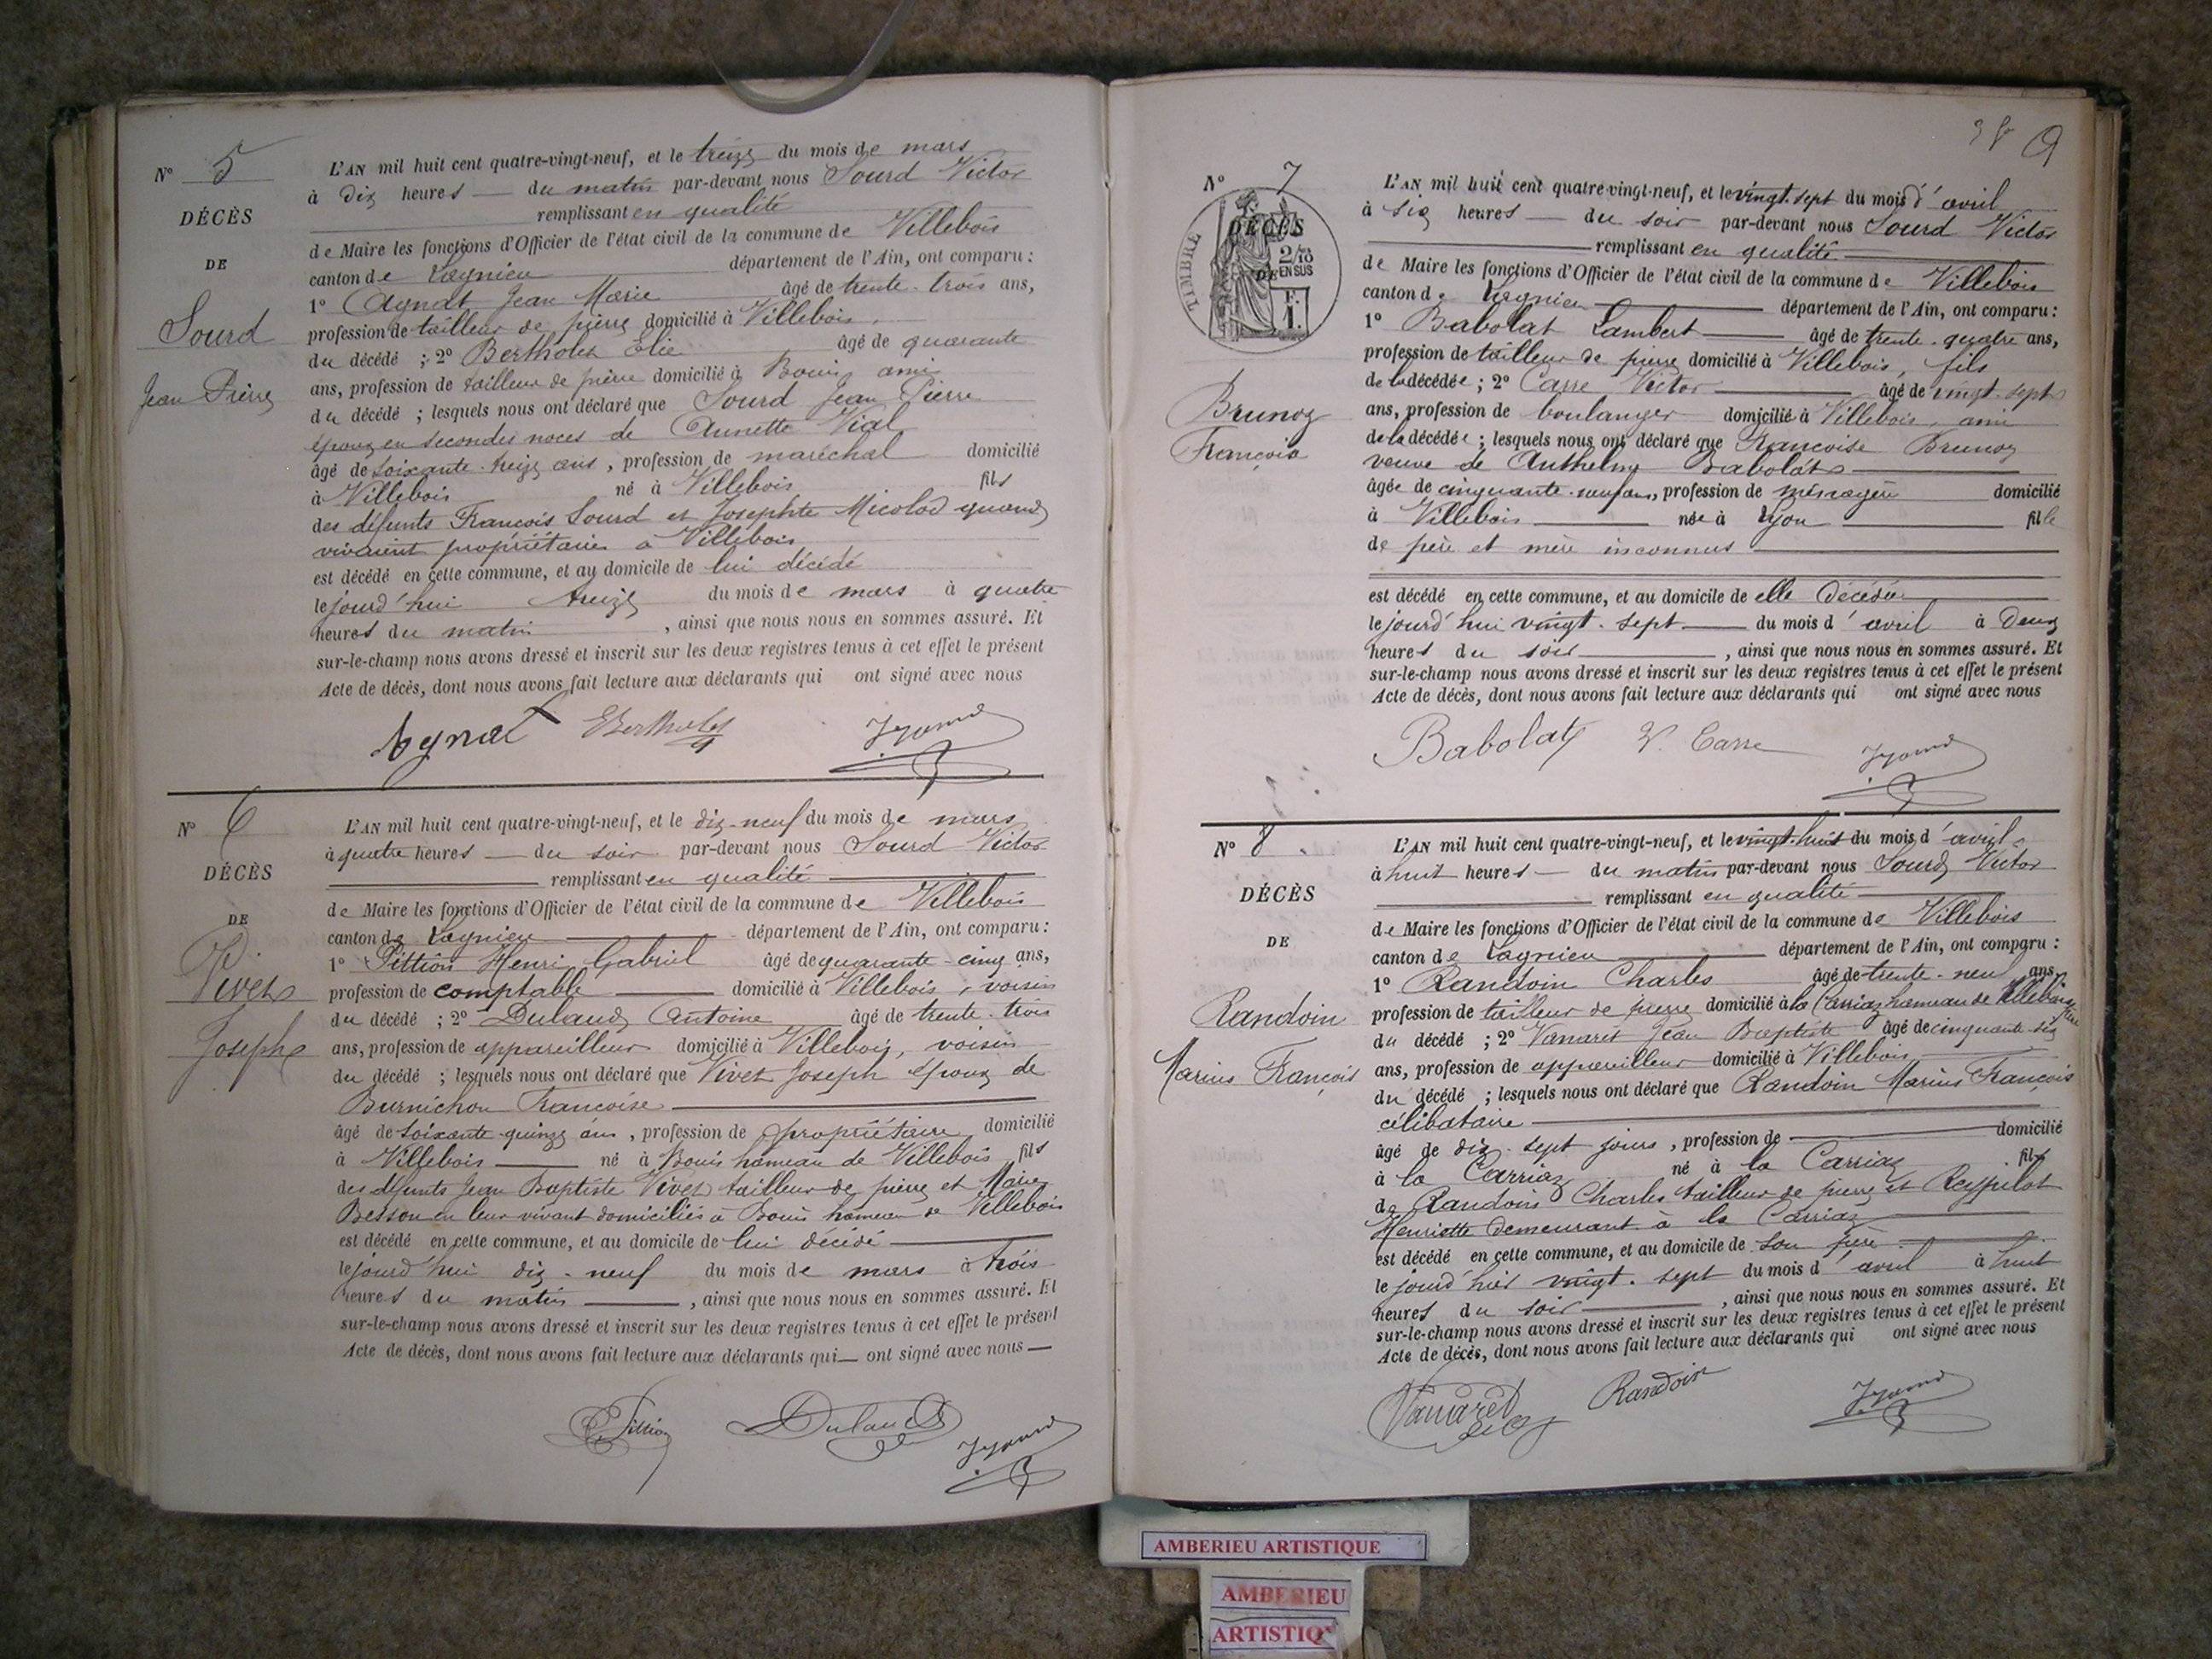 N° 5
DÉCÈS
DE
Sourd
Jean Pierre
L'AN mil huit cent quatre-vingt-neuf, et le treize du mois de mars
à dix heures du matin par-devant nous Sourd Victor
remplissant en qualité
de Maire les fonctions d'Officier de l'état civil de la commune de Villebois
canton de Lagnieu département de l'Ain, ont comparu :
1° Agnat Jean Marie âgé de trente-trois ans,
profession de tailleur de pierre domicilié à Villebois,
du décédé ; 2° Bertholet Elie âgé de quarante
ans, profession de tailleur de pierre domicilié à Bouis, ami
du décédé ; lesquels nous ont déclaré que Sourd Jean Pierre
époux en secondes noces de Annette Vial
âgé de soixante-treize ans, profession de maréchal domicilié
à Villebois né à Villebois fils
des défunts François Sourd et Josephte Micolod quand
vivaient propriétaires à Villebois
est décédé en cette commune, et au domicile de lui décédé
le jourd'hui treize du mois de mars à quatre
heures du matin, ainsi que nous nous en sommes assuré. Et
sur-le-champ nous avons dressé et inscrit sur les deux registres tenus à cet effet le présent
Acte de décès, dont nous avons fait lecture aux déclarants qui ont signé avec nous
Agnat EBertholet
N° 6
DÉCÈS
DE
Vivet
Joseph
L'AN mil huit cent quatre-vingt-neuf, et le dix-neuf du mois de mars
à quatre heures du soir par-devant nous Sourd Victor
remplissant en qualité
de Maire les fonctions d'Officier de l'état civil de la commune de Villebois
canton de Lagnieu département de l'Ain, ont comparu :
1° Pittion Henri Gabriel âgé de quarante-cinq ans,
profession de comptable domicilié à Villebois, voisin
du décédé ; 2° Dulaud Antoine âgé de trente-trois
ans, profession de appareilleur domicilié à Villebois, voisin
du décédé ; lesquels nous ont déclaré que Vivet Joseph époux de
Burnichon Francoise
âgé de soixante-quinze ans, profession de propriétaire domicilié
à Villebois né à Bouis hameau de Villebois fils
des défunts Jean Baptiste Vivet tailleur de pierre et Marie
Besson en leur vivant domiciliés à Bouis hameau de Villebois
est décédé en cette commune, et au domicile de lui décédé
le jourd'hui dix-neuf du mois de mars à trois
heures du matin, ainsi que nous nous en sommes assuré. Et
sur-le-champ nous avons dressé et inscrit sur les deux registres tenus à cet effet le présent
Acte de décès, dont nous avons fait lecture aux déclarants qui ont signé avec nous
Pittion Dulaud
9
N° 7
TIMBRE
DÉCÈS
2/10
DE EN SUS
F.
1.
Brunoz
Françoise
L'AN mil huit cent quatre-vingt-neuf, et le vingt-sept du mois d'avril
à six heures du soir par-devant nous Sourd Victor
remplissant en qualité
de Maire les fonctions d'Officier de l'état civil de la commune de Villebois
canton de Lagnieu département de l'Ain, ont comparu :
1° Babolat Lambert âgé de trente-quatre ans,
profession de tailleur de pierre domicilié à Villebois, fils
de la décédée ; 2° Carre Victor âgé de vingt-sept
ans, profession de boulanger domicilié à Villebois, ami
de la décédée ; lesquels nous ont déclaré que Francoise Brunoz
veuve de Anthelme Babolat
âgée de cinquante-neuf ans, profession de ménagère domicilié
à Villebois née à Lyon fille
de père et mère inconnus
est décédé en cette commune, et au domicile de elle décédée
le jourd'hui vingt-sept du mois d'avril à deux
heures du soir, ainsi que nous nous en sommes assuré. Et
sur-le-champ nous avons dressé et inscrit sur les deux registres tenus à cet effet le présent
Acte de décès, dont nous avons fait lecture aux déclarants qui ont signé avec nous
Babolat V. Carre
N° 8
DÉCÈS
DE
Randoin
Marius François
L'AN mil huit cent quatre-vingt-neuf, et le vingt-huit du mois d'avril
à huit heures du matin par-devant nous Sourd Victor
remplissant en qualité
de Maire les fonctions d'Officier de l'état civil de la commune de Villebois
canton de Lagnieu département de l'Ain, ont comparu :
1° Randoin Charles âgé de trente-neuf ans,
profession de tailleur de pierre domicilié à la Carriaz hameau de Villebois père
du décédé ; 2° Vanaret Jean Baptiste âgé de cinquante-six
ans, profession de appareilleur domicilié à Villebois
du décédé ; lesquels nous ont déclaré que Randoin Marius François
célibataire
âgé de dix-sept jours, profession de domicilié
à la Carriaz né à la Carriaz fils
de Randoin Charles tailleur de pierre et Reypilot
Henriette demeurant à la Carriaz
est décédé en cette commune, et au domicile de son père
le jourd'hier vingt-sept du mois d'avril à huit
heures du soir, ainsi que nous nous en sommes assuré. Et
sur-le-champ nous avons dressé et inscrit sur les deux registres tenus à cet effet le présent
Acte de décès, dont nous avons fait lecture aux déclarants qui ont signé avec nous
Vanaret Randoin
AMBERIEU ARTISTIQUE
AMBERIEU
ARTISTIQ